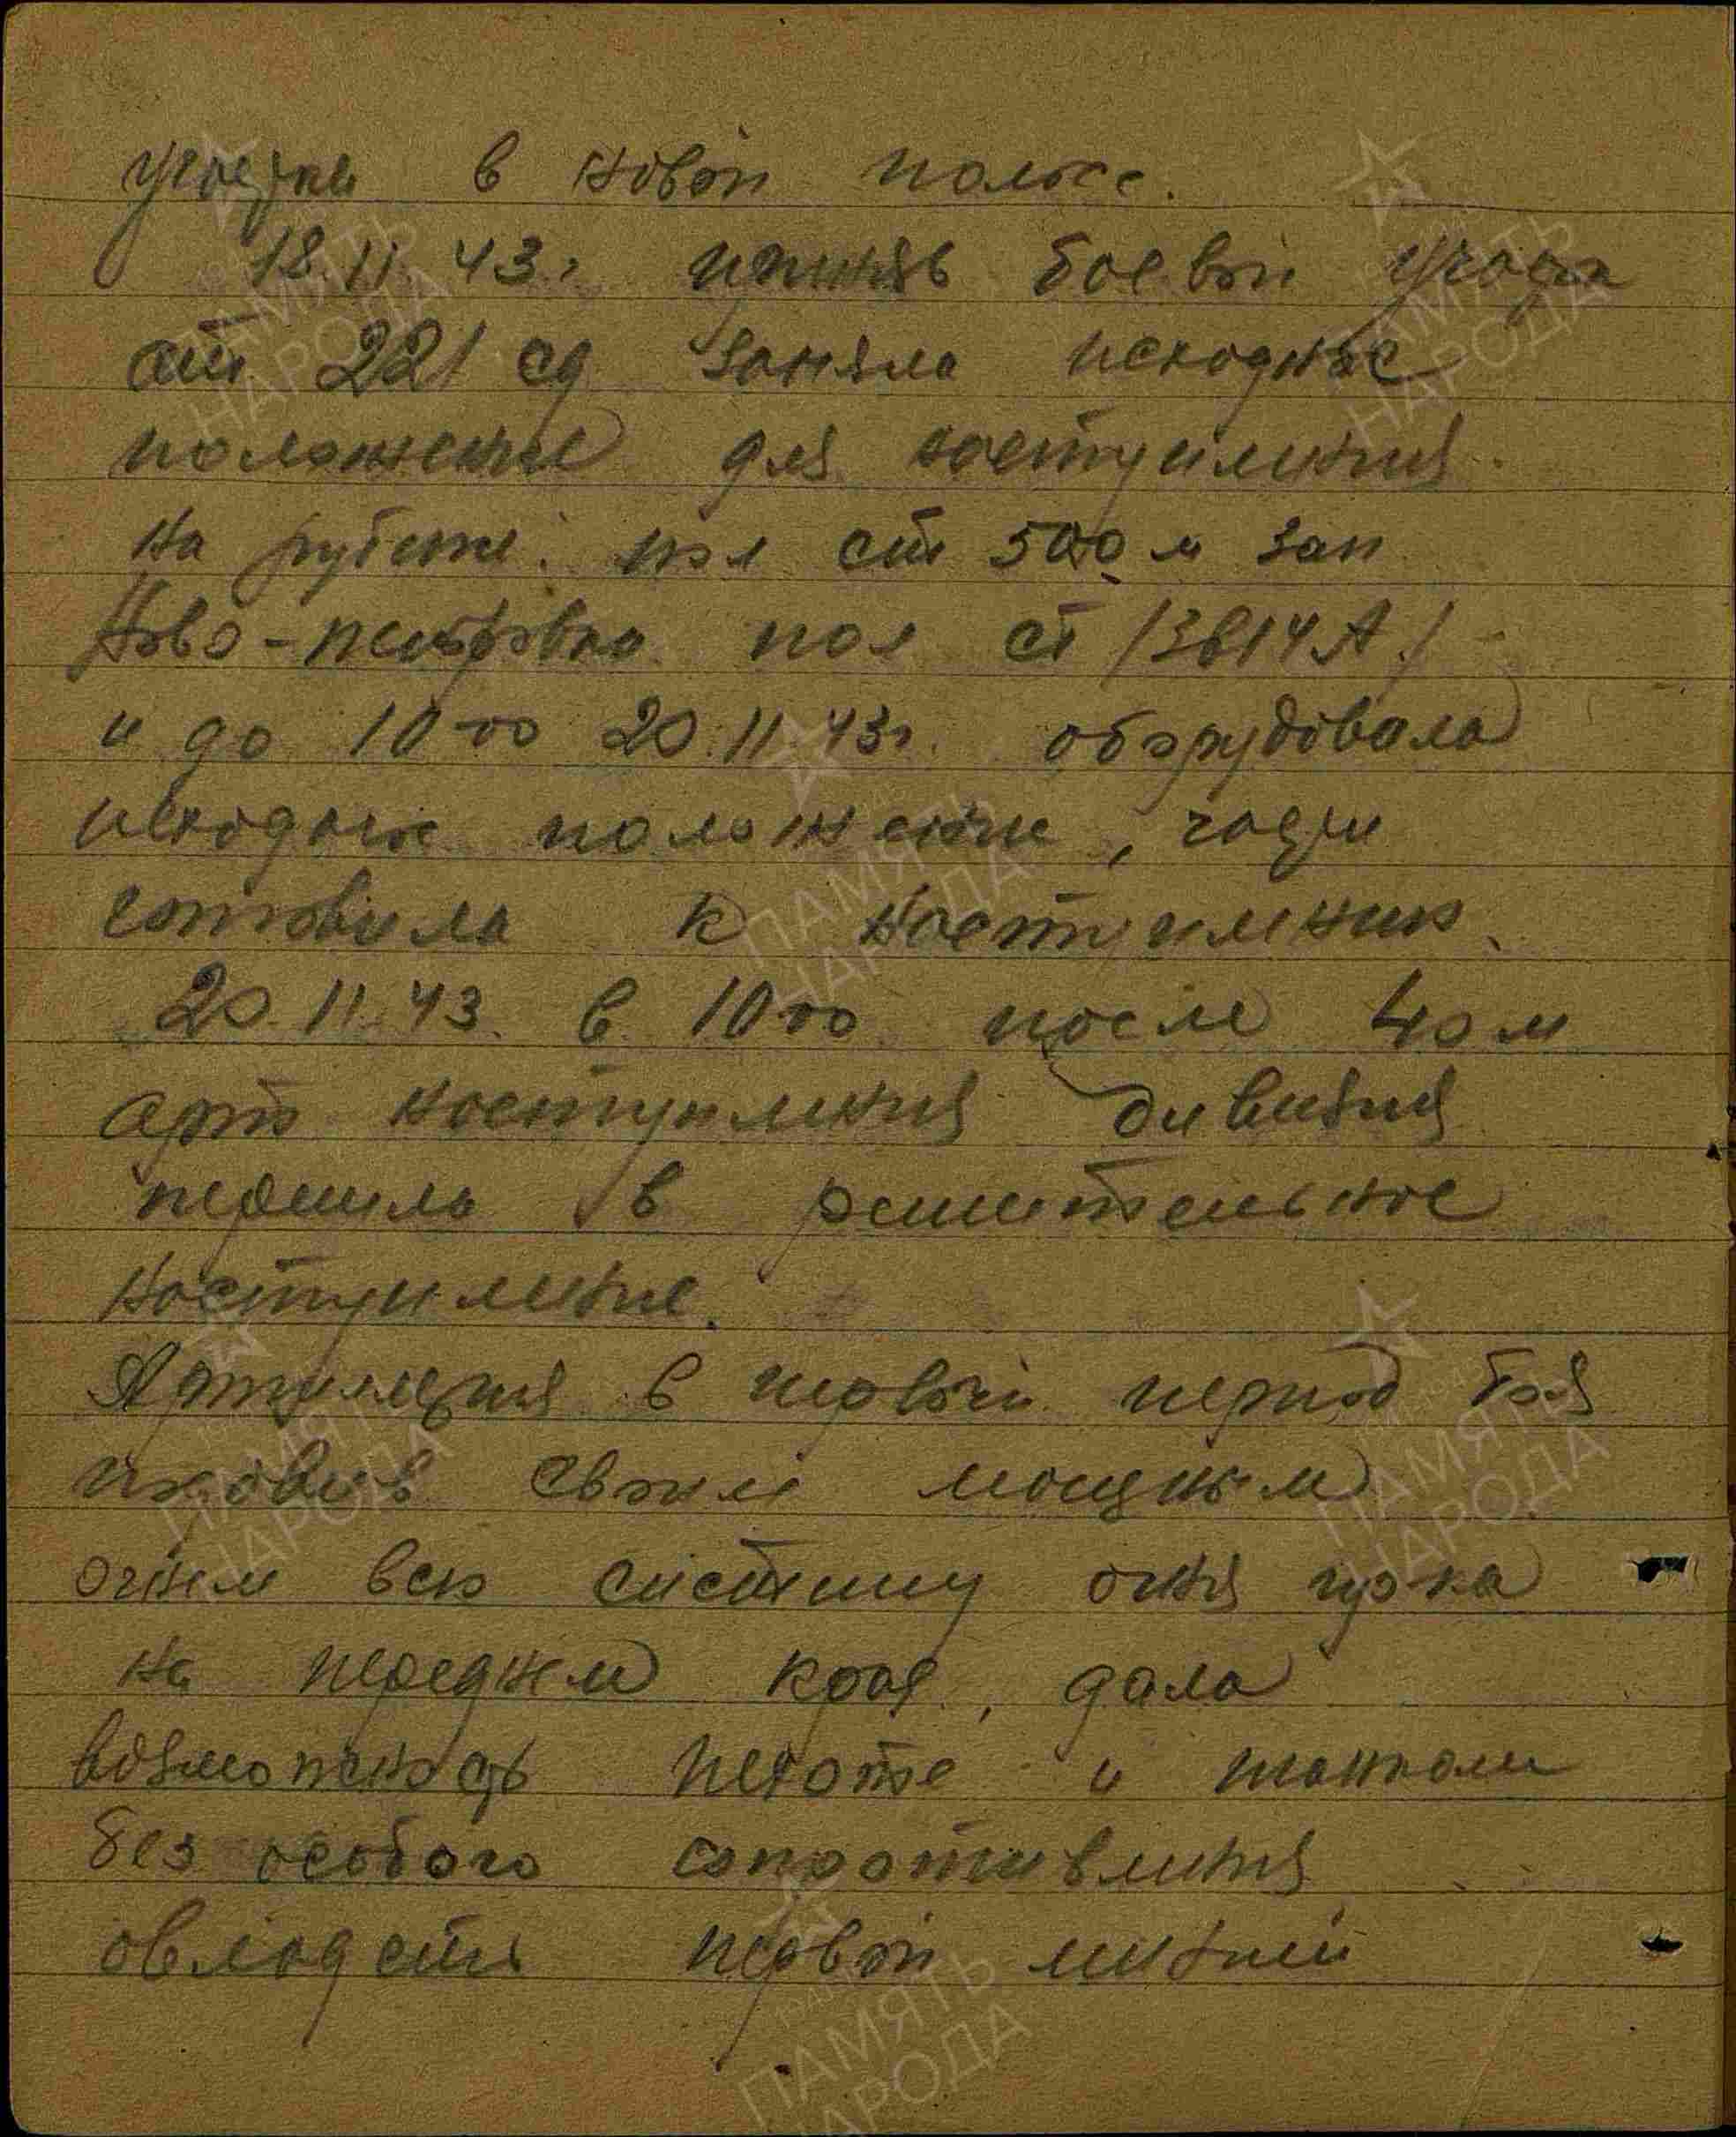 участка в новой полосе.
18.11.43г. приняв боевой участок
от 221 сд заняла исходное
положение для наступления
на рубеже: пол ст 500 м зап
Ново-петровка пол ст /3614А/
и до 10-00 20.11.43г. оборудовала
исходное положение, части
готовила к наступлению.
20.11.43. в 10-00 после 40 м
арт наступления дивизия
перешла в решительное
наступление.
Артиллерия в первый период боя
подавив своим мощным
огнем всю систему огня пр-ка
на переднем крае, дала
возможность пехоте и танкам
без особого сопротивления
овладеть первой линией
ПАМЯТЬ
НАРОДА
ПАМЯТЬ
НАРОДА
ПАМЯТЬ
НАРОДА
ПАМЯТЬ
НАРОДА
ПАМЯТЬ
НАРОДА
ПАМЯТЬ
НАРОДА